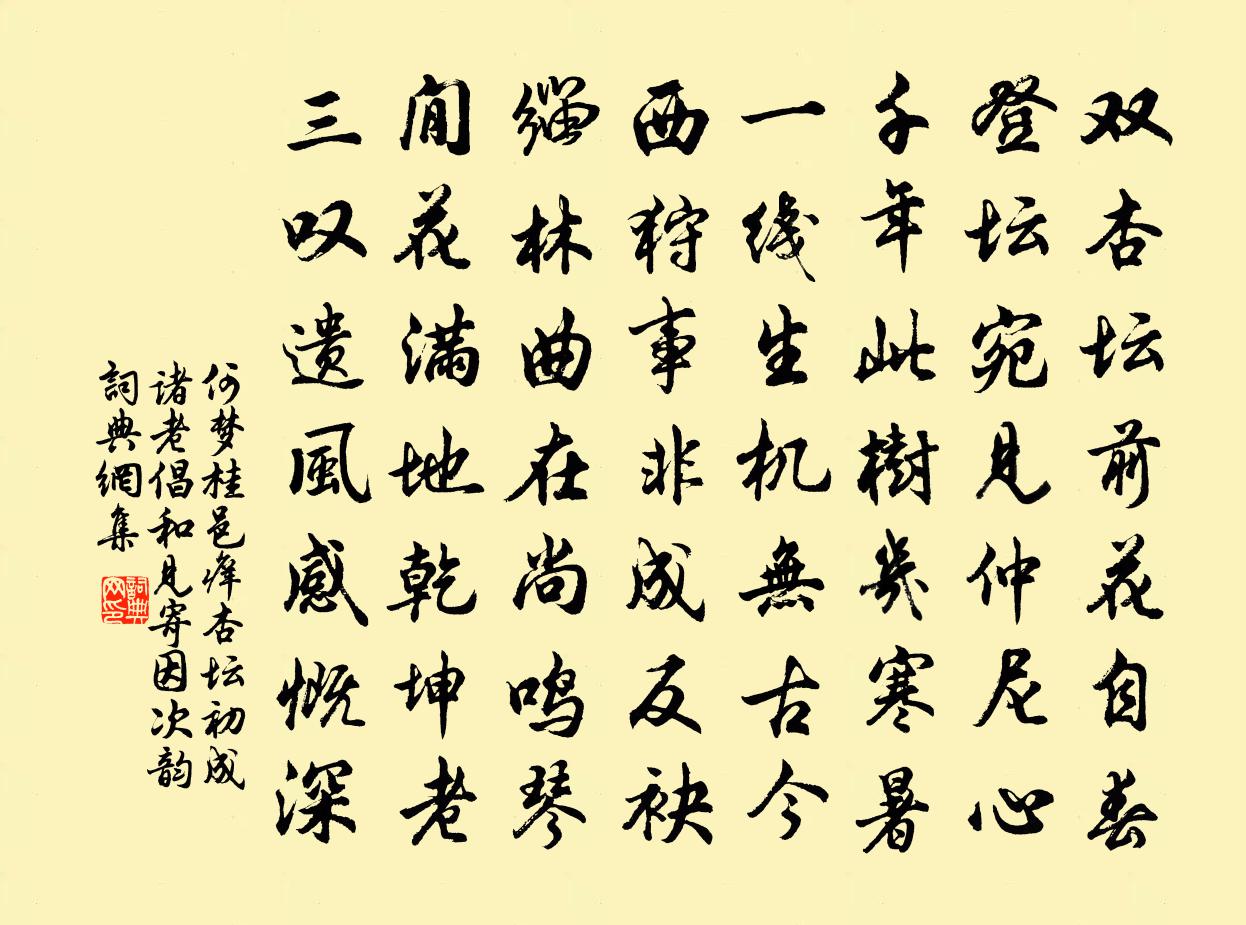 双杏坛前花自春
登坛宛见仲尼心
千年此樹幾寒暑
一线生机無古今
西狩事非成反袂
缁林曲在尚鸣琴
閒花满地乾坤老
三叹遗風感慨深
何梦桂邑庠杏坛初成
诸老倡和见寄因次韵
詞典網集
詞典网印